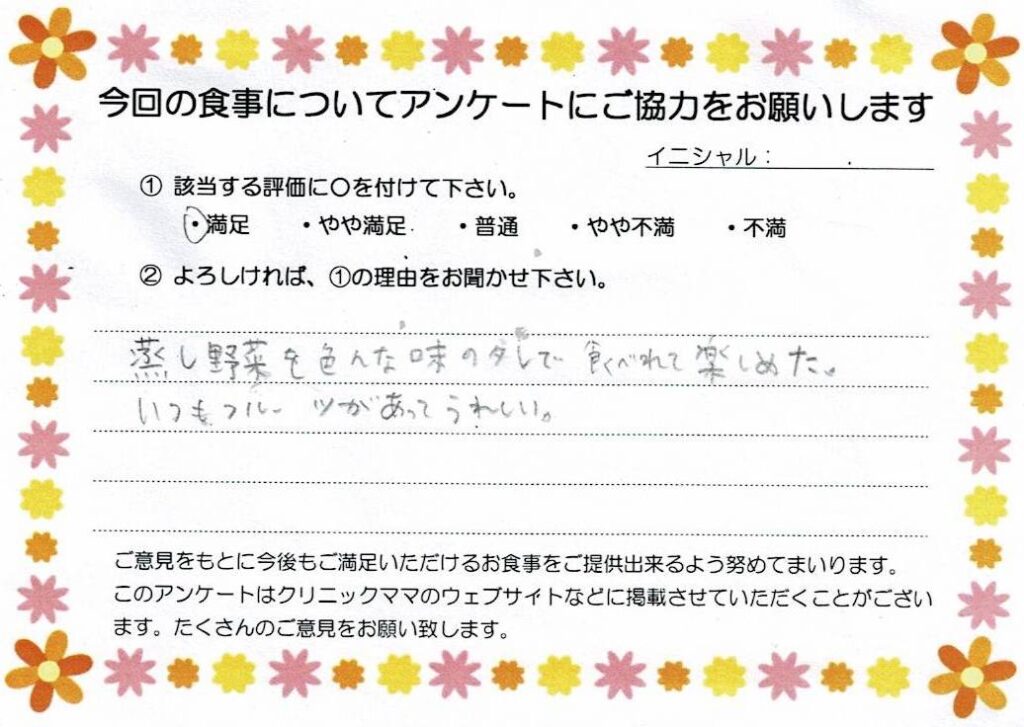 今回の食事についてアンケートにご協力をお願いします
イニシャル：
① 該当する評価に〇を付けて下さい。
・満足 ・やや満足 ・普通 ・やや不満 ・不満
② よろしければ、①の理由をお聞かせ下さい。
蒸し野菜を色んな味のタレで食べれて楽しめた。
いつもフルーツがあってうれしい。
ご意見をもとに今後もご満足いただけるお食事をご提供出来るよう努めてまいります。
このアンケートはクリニックママのウェブサイトなどに掲載させていただくことがござい
ます。たくさんのご意見をお願い致します。